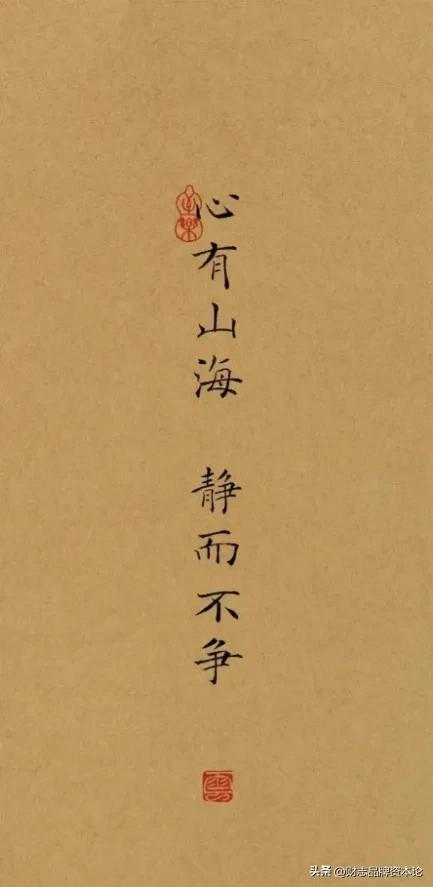 心有山海 静而不争
头条 @财志品牌资本论